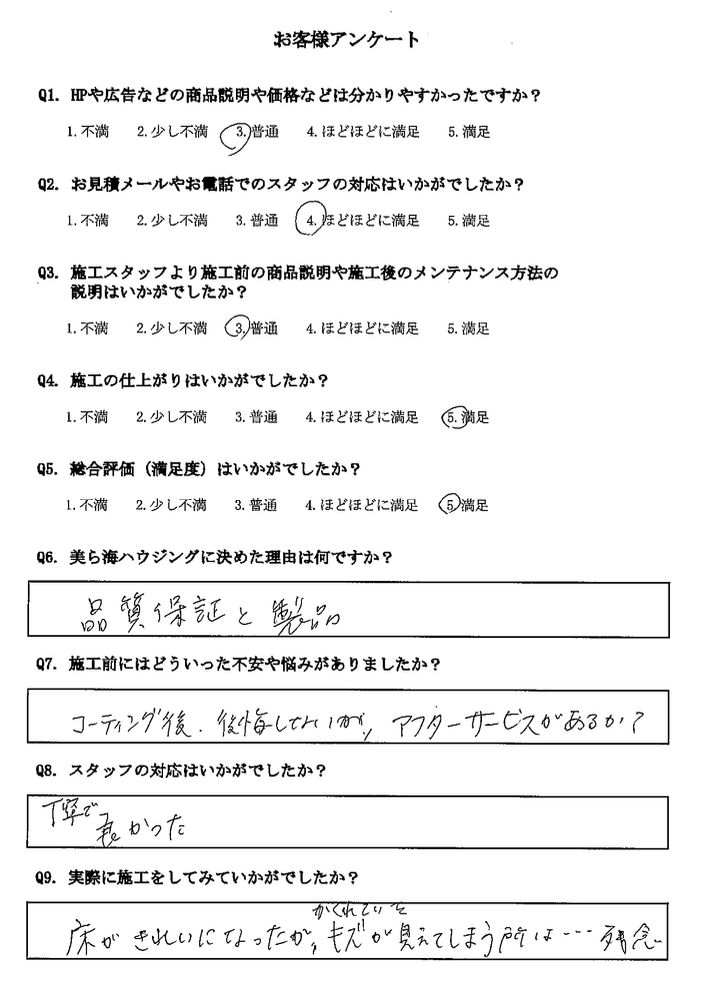 お客様アンケート
Q1. HPや広告などの商品説明や価格などは分かりやすかったですか？
1. 不満 2. 少し不満 3. 普通 4. ほどほどに満足 5. 満足
Q2. お見積メールやお電話でのスタッフの対応はいかがでしたか？
1. 不満 2. 少し不満 3. 普通 4. ほどほどに満足 5. 満足
Q3. 施工スタッフより施工前の商品説明や施工後のメンテナンス方法の
説明はいかがでしたか？
1. 不満 2. 少し不満 3. 普通 4. ほどほどに満足 5. 満足
Q4. 施工の仕上がりはいかがでしたか？
1. 不満 2. 少し不満 3. 普通 4. ほどほどに満足 5. 満足
Q5. 総合評価（満足度）はいかがでしたか？
1. 不満 2. 少し不満 3. 普通 4. ほどほどに満足 5. 満足
Q6. 美ら海ハウジングに決めた理由は何ですか？
品質保証と製品
Q7. 施工前にはどういった不安や悩みがありましたか？
コーティング後、後悔しないか、アフターサービスがあるか？
Q8. スタッフの対応はいかがでしたか？
丁寧で
良かった
Q9. 実際に施工をしてみていかがでしたか？
かくれていた
床がきれいになったが、キズが見えてしまう所は…残念